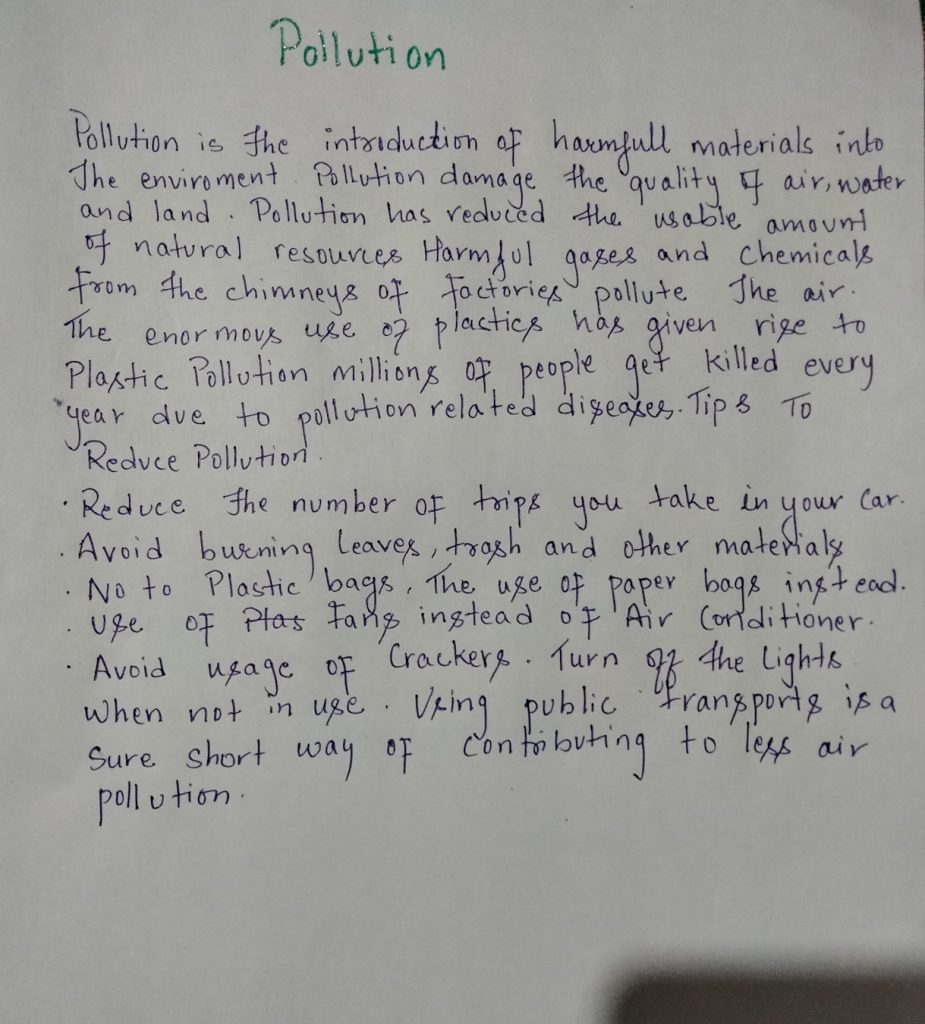 Pollution
Pollution is the introduction of harmfull materials into
The enviroment. Pollution damage the quality of air, water
and land. Pollution has reduced the usable amount
of natural resources Harmful gases and chemicals
from the chimneys of factories pollute The air.
The enormous use of plastics has given rise to
Plastic Pollution millions of people get killed every
year due to pollution related diseases. Tips To
Reduce Pollution.
· Reduce The number of trips you take in your Car.
· Avoid burning leaves, trash and other materials
· No to Plastic bags, The use of paper bags instead.
· Use of Plas Fans instead of Air Conditioner.
· Avoid usage of Crackers. Turn off the Lights
When not in use. Using public transports is a
Sure Short way of Contributing to less air
pollution.